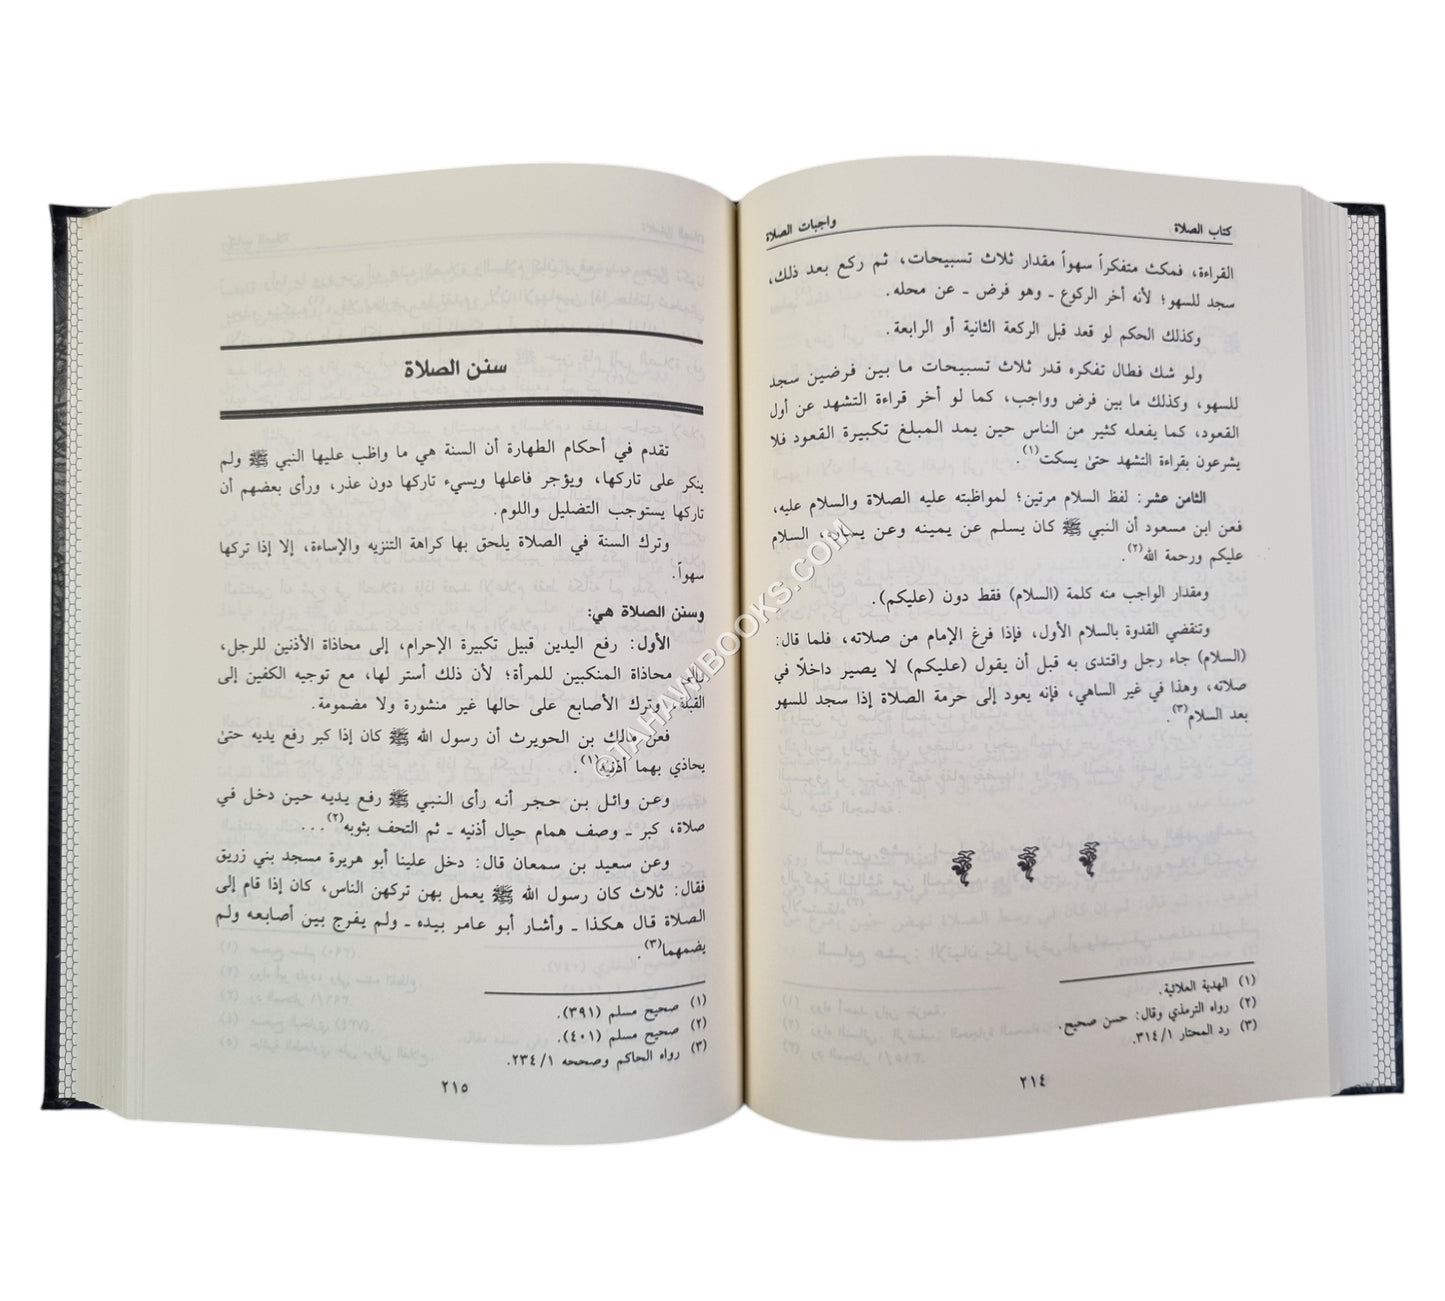 كتاب الصلاة
واجبات الصلاة
القراءة، فمكث متفكراً سهواً مقدار ثلاث تسبيحات، ثم ركع بعد ذلك،
سجد للسهو؛ لأنه أخر الركوع ـ وهو فرض ـ عن محله.
وكذلك الحكم لو قعد قبل الركعة الثانية أو الرابعة.
ولو شك فطال تفكره قدر ثلاث تسبيحات ما بين فرضين سجد
للسهو، وكذلك ما بين فرض وواجب، كما لو أخر قراءة التشهد عن أول
القعود، كما يفعله كثير من الناس حين يمد المبلغ تكبيرة القعود فلا
يشرعون بقراءة التشهد حتىٰ يسكت(١).
الثامن عشر: لفظ السلام مرتين؛ لمواظبته عليه الصلاة والسلام عليه،
فعن ابن مسعود أن النبي ﷺ كان يسلم عن يمينه وعن يساره، السلام
عليكم ورحمة الله(٢).
ومقدار الواجب منه كلمة (السلام) فقط دون (عليكم).
وتنقضي القدوة بالسلام الأول، فإذا فرغ الإمام من صلاته، فلما قال:
(السلام) جاء رجل واقتدى به قبل أن يقول (عليكم) لا يصير داخلًا في
صلاته، وهذا في غير الساهي، فإنه يعود إلى حرمة الصلاة إذا سجد للسهو
بعد السلام(٣).
(١) الهدية العلائية.
(٢) رواه الترمذي وقال: حسن صحيح.
(٣) رد المحتار ٣١٤/١.
٢١٤
سنن الصلاة
تقدم في أحكام الطهارة أن السنة هي ما واظب عليها النبي ﷺ ولم
ينكر على تاركها، ويؤجر فاعلها ويسيء تاركها دون عذر، ورأى بعضهم أن
تاركها يستوجب التضليل واللوم.
وترك السنة في الصلاة يلحق بها كراهة التنزيه والإساءة، إلا إذا تركها
سهواً.
وسنن الصلاة هي:
الأول: رفع اليدين قبيل تكبيرة الإحرام، إلى محاذاة الأذنين للرجل،
وإلى محاذاة المنكبين للمرأة؛ لأن ذلك أستر لها، مع توجيه الكفين إلى
القبلة، وترك الأصابع على حالها غير منشورة ولا مضمومة.
فعن مالك بن الحويرث أن رسول الله ﷺ كان إذا كبر رفع يديه حتىٰ
يحاذي بهما أذنيه(١).
وعن وائل بن حجر أنه رأى النبي ﷺ رفع يديه حين دخل في
صلاة، كبر ـ وصف همام حيال أذنيه ـ ثم التحف بثوبه(٢)...
وعن سعيد بن سمعان قال: دخل علينا أبو هريرة مسجد بني زريق
فقال: ثلاث كان رسول الله ﷺ يعمل بهن تركهن الناس، كان إذا قام إلى
الصلاة قال هكذا ـ وأشار أبو عامر بيده ـ ولم يفرج بين أصابعه ولم
يضمهما(٣).
(١) صحيح مسلم (٣٩١).
(٢) صحيح مسلم (٤٠١).
(٣) رواه الحاكم وصححه ٢٣٤/١.
٢١٥
©TAHAWIBOOKS.COM